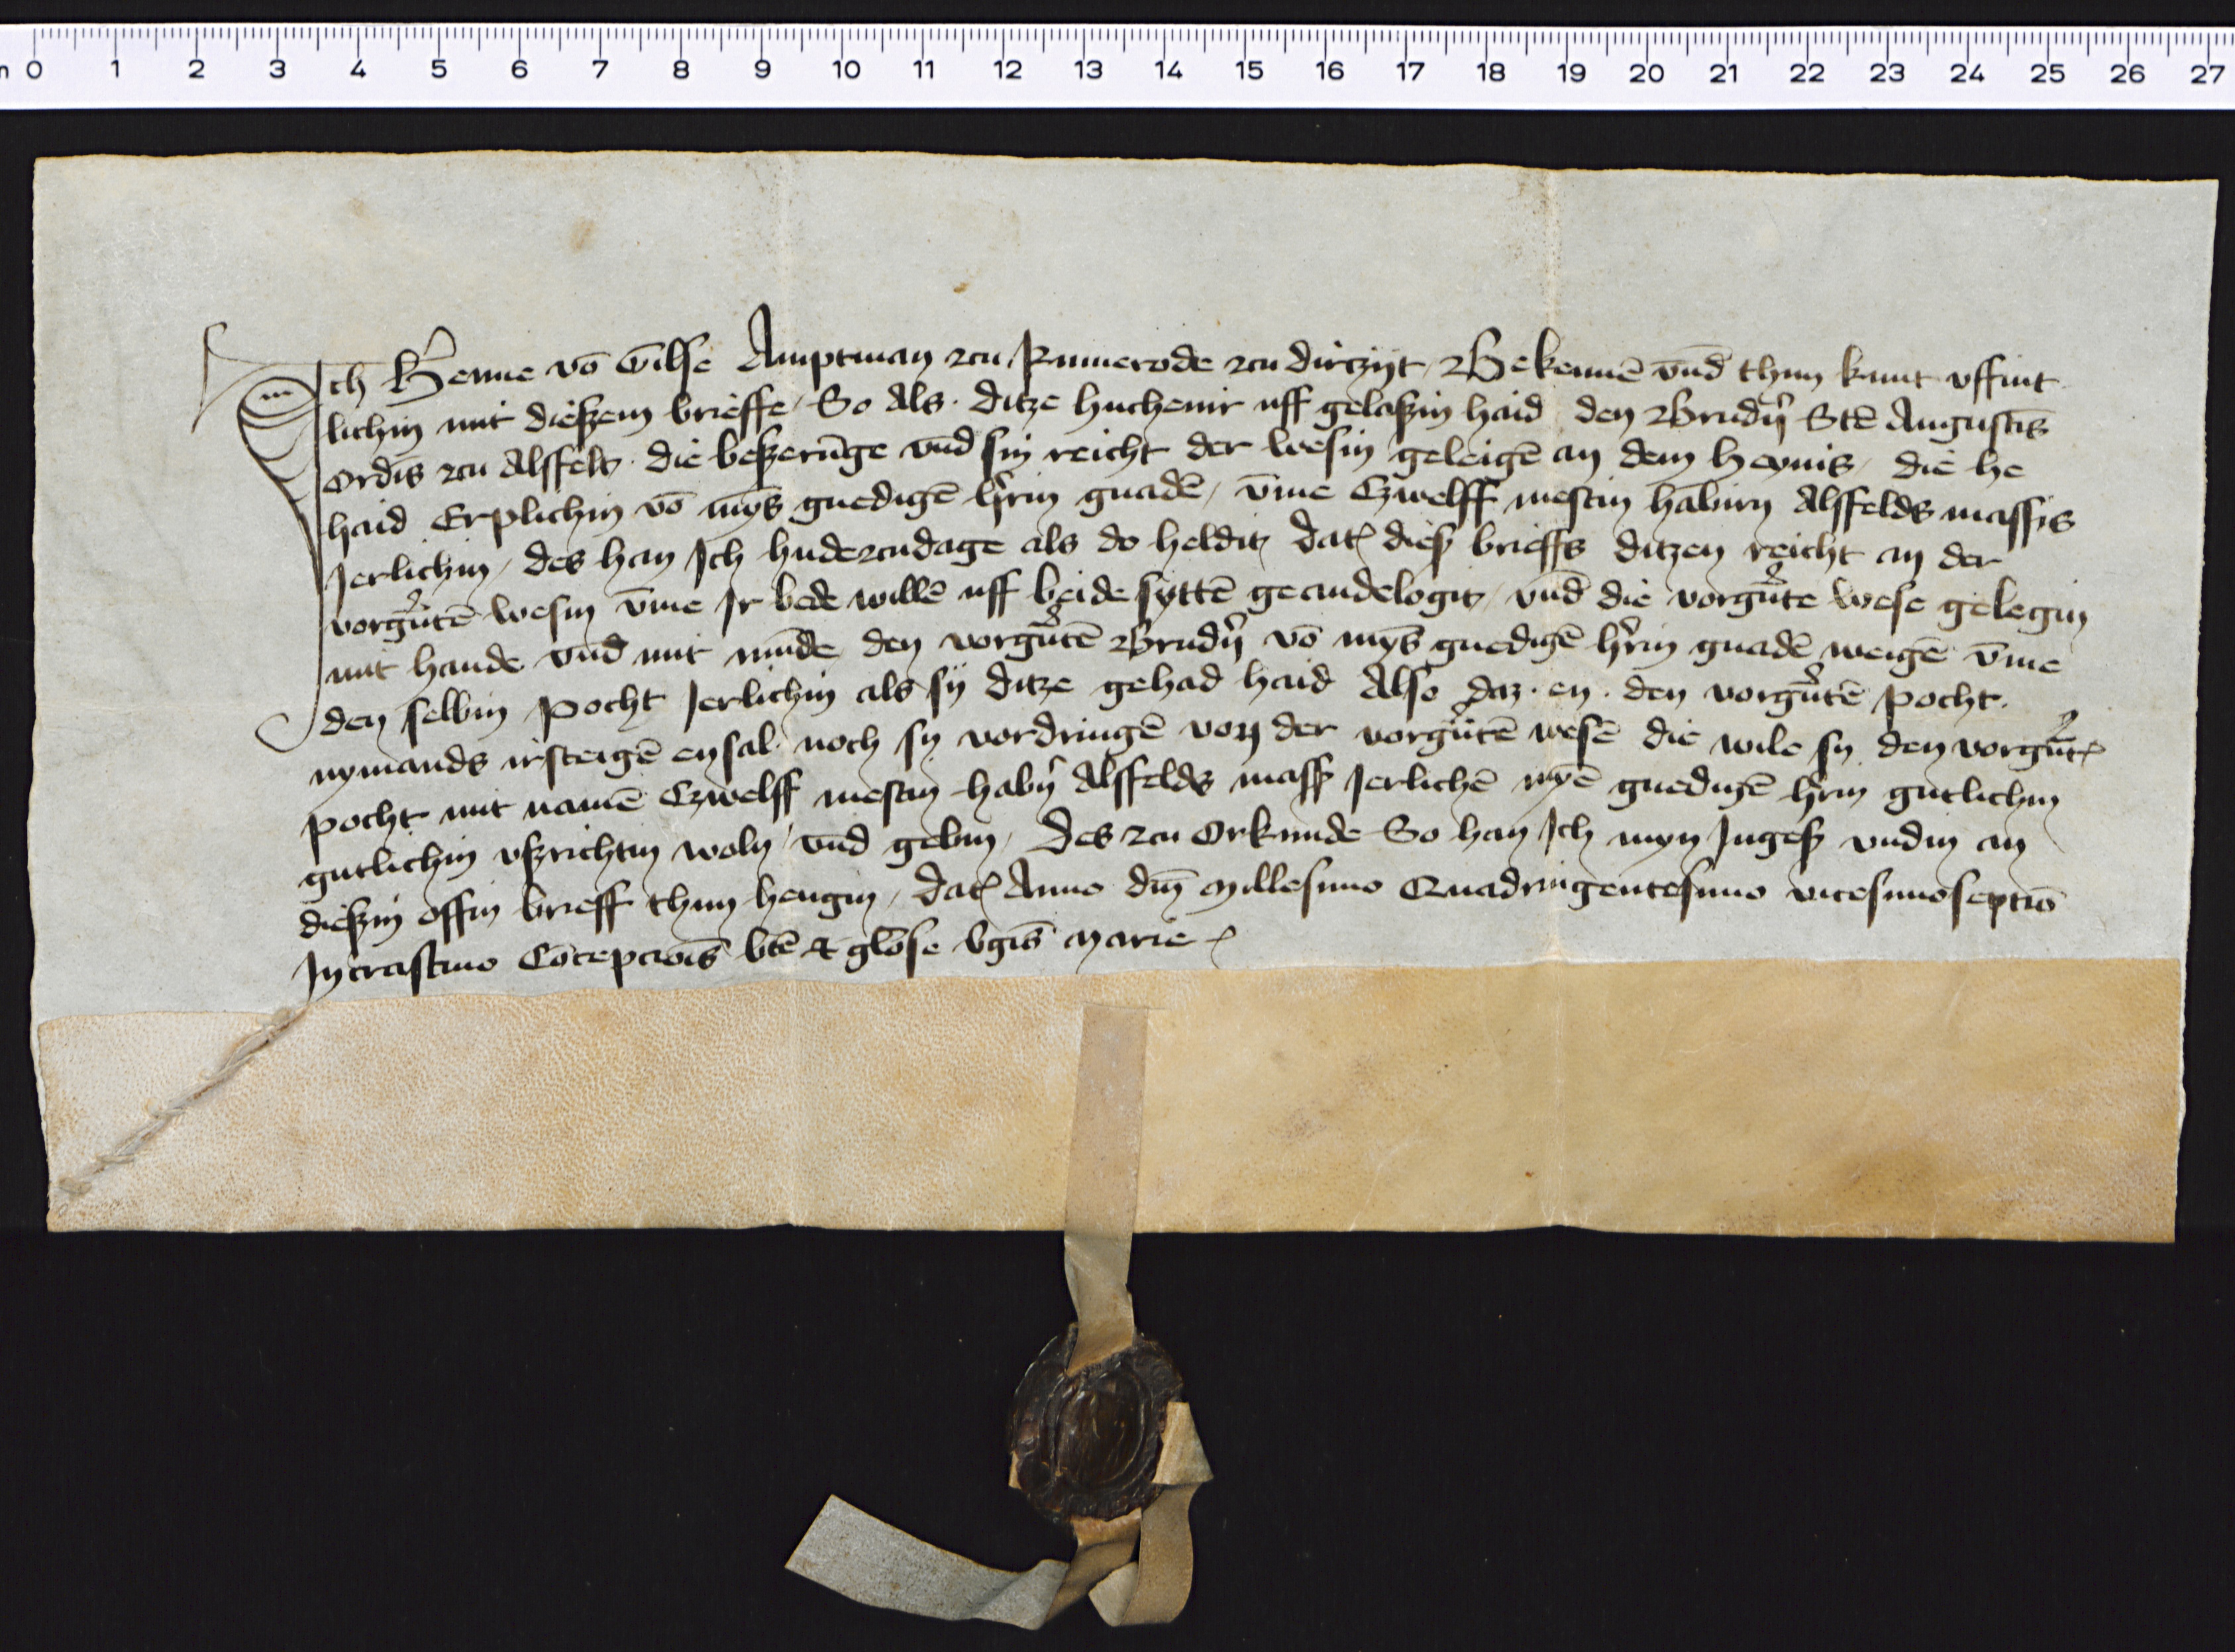 0 1 2 3 4 5 6 7 8 9 10 11 12 13 14 15 16 17 18 19 20 21 22 23 24 25 26 27
Ich Henne vō Gilse Amptman zcu Rumerode zcu dirczijt, Bekennē vnd thun kunt uffint
lichin mit dieszem brieffe, So Als ditze huchenir uff gelaszin haid den Brudern Stē Augustīs
Ordīs zcu Alsfelt, die beszerūge vnd sin reicht der wesin geleigē an dem heynis, die he
haid Erplichin vō mȳs gnedigē hrin gnadē, vme Czwelff mestin habirn Alsfelds massis
Jerlichin, des han Ich hudezcudage als do heldit dat diesz brieffs ditzen reicht an der
vorgūtē wesin vme Ir bede willē uff beide syttē geandelogit, vnd die vorgūte wese gelegin
mit hande vnd mit mūde den vorgūtē Brudern vō mȳs gnedigē hrin gnadē weigē vme
den selbin pocht Jerlichin als sij ditze gehad haid Also daz en den vorgūtē pocht
nymands irsteigē ensal noch sy vordringē von der vorgūtē wesē die wile sy den vorgūt
pocht mit namē Czwelff mestin habirn Alsfelds massz Jerlichē mȳē gnedigē hrin gutlichin
gutlichin vszrichtin woln vnd gebin, Des zcu Orkunde So han Ich myn Ingesz vndin an
dieszin offin brieff thun hengin, dat Anno dni Millesimo Quadringentesimo vicesimoseptīo
In crastino Cōcepcioīs btē et glōse vgīs marie